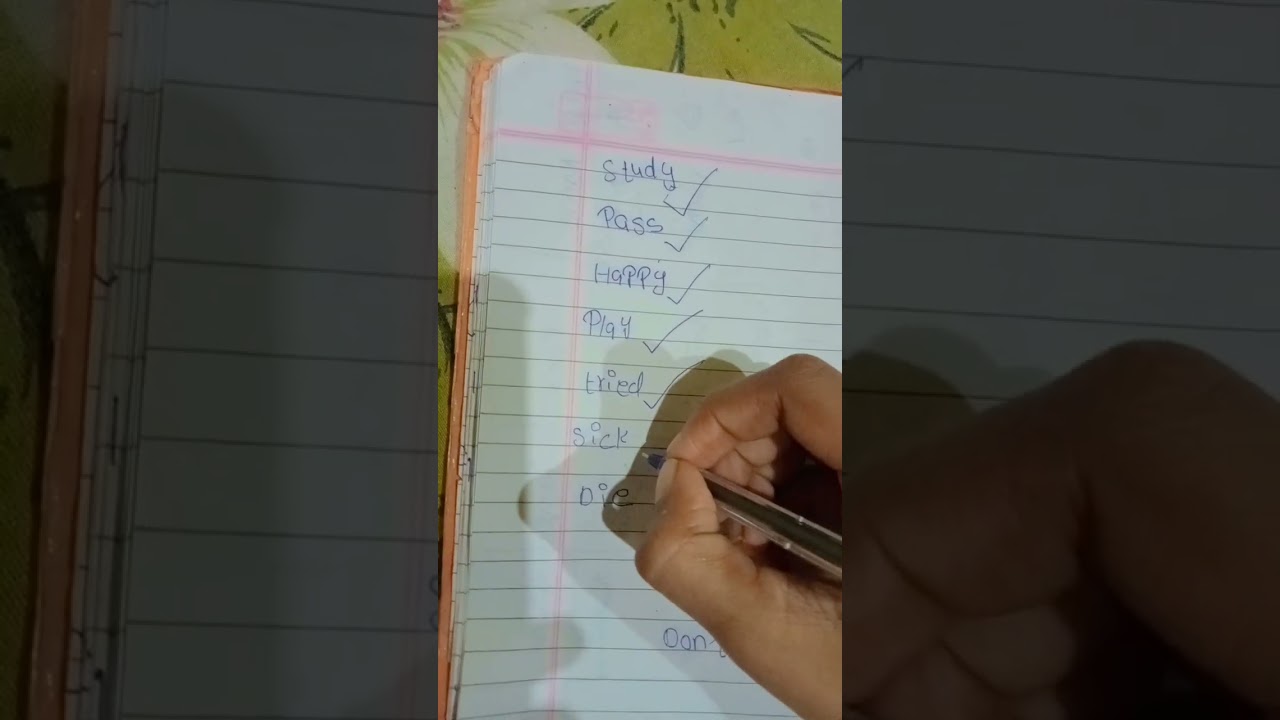 Study
Pass
Happy
Play
tried
Sick
Die
Don't